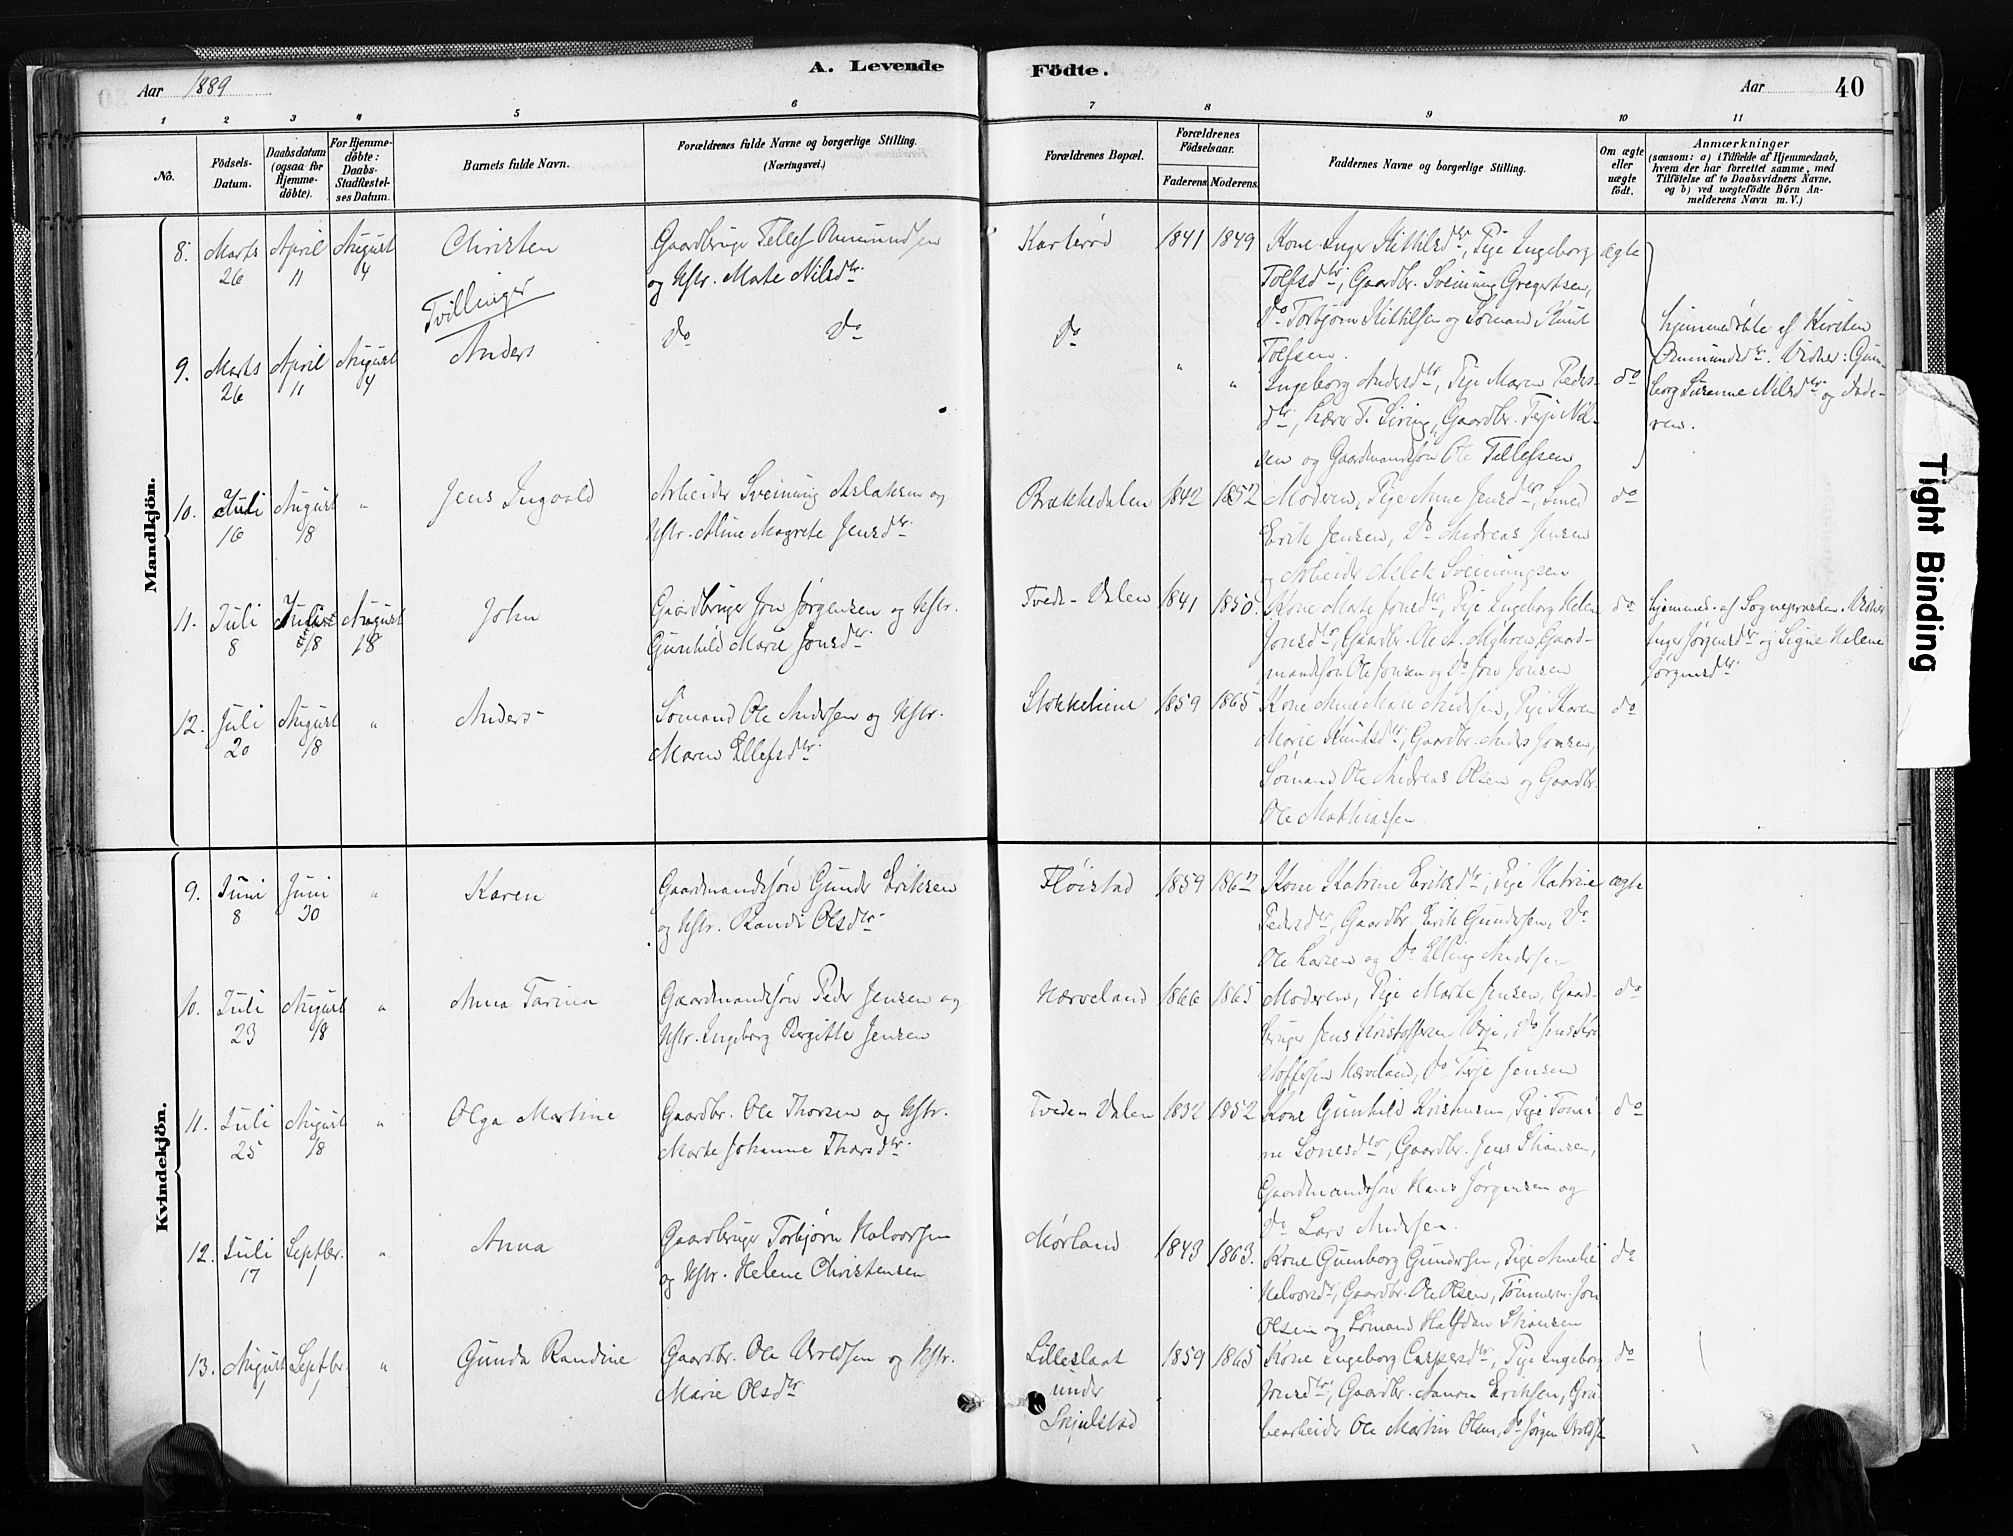 A. Levende Födte.
Aar 1889
Aar 40
1 2 3 4 5 6 7 8 9 10 11
No.
Födsels-Datum.
Daabsdatum (ogsaa for Hjemmedöbte).
For Hjemmedöbte: Daabs-Stadfæstelses Datum.
Barnets fulde Navn.
Forældrenes fulde Navne og borgerlige Stilling.
(Næringsvei.)
Forældrenes Bopæl.
Forældrenes Födselsaar.
Faderens. Moderens.
Faddernes Navne og borgerlige Stilling.
Om ægte eller uægte födt.
Anmærkninger
(saasom: a) i Tilfælde af Hjemmedaab,
hvem der har forrettet samme, med
Tilföielse af to Daabsvidners Navne,
og b) ved uægtefödte Börn An-
melderens Navn m. V.)
Mandkjön.
8. Marts 26 April 11 August 4 Christen
Gaardbruger Tellef Omundsen
og Hstr. Marte Nilsdtr.
Karterød 1841 1849
Kone Inger Kittilsdtr, Pige Ingeborg
Tolfsdtr, Gaardbr. Sveinung Gregertsen,
Do Torbjørn Kittilsen og Sømand Knut
Tolfsen.
ægte
Tvillinger
9. Marts 26 April 11 August 4 Anders
Do Do Do " "
Ingeborg Andersdtr, Pige Maren Peders-
dtr, Lærer T. Siring, Gaardbr. Terje Nil-
sen og Gaardmandssøn Ole Tellefsen
do
hjemmedöbte af Kirsten
Omundsdtr. Vidner: Gun-
borg Susanne Nilsdtr og Fade-
ren.
10. Juli 16 August 18 " Jens Ingvald
Arbeider Sveinung Aslaksen og
Hstr. Aline Magrete Jensdtr.
Brækkedalen 1842 1852
Moderen, Pige Anne Jensdtr, Smed
Erik Jensen, Do Andreas Jensen
og Arbeider Aslak Sveinungsen
do
11. Juli 8 Juli 18 August 18 John
Gaardbruger Jon Jørgensen og Hstr.
Gunhild Marie Jonsdtr.
Tvede-Dalen 1841 1850.
Kone Marte Jonsdtr, Pige Ingeborg Helene
Jonsdtr, Gaardbr. Ole A. Myhren, Gaard-
mandssøn Ole Jonsen og Do Jon Jonsen
do
hjemmed. af Sognepresten. Vidner
Inger Jørgensdtr og Signe Helene
Jørgensdtr.
12. Juli 20 August 18 " Anders
Sømand Ole Andersen og Hstr.
Maren Ellefsdtr.
1859 1865
Kone Anne Marie Andersen, Pige Karen
Marie Knutsdtr, Gaardbr. Anders Jonsen,
Sømand Ole Andreas Olsen og Gaardbr.
Ole Mathiassen.
do
Kvindekjön.
9. Juni 8 Juni 30 " Karen
Gaardmandssøn Gunder Eriksen
og Hstr. Randi Olsdtr.
Fløistad 1859 1862
Kone Katrine Eriksdtr, Pige Katrine
Pedersdtr, Gaardbr. Erik Gundersen, Do
Ole Larsen og Do Elling Andersen
ægte
10. Juli 23 August 18 " Anna Tarina
Gaardmandssøn Peder Jensen og
Hstr. Ingeborg Birgitte Jensen
Nærveland 1866 1865
Moderen, Pige Marte Jensen, Gaard-
bruger Jens Kristoffersen Veje, Do Jens Kri-
stoffersen Nærveland, Do Terje Jensen
do
11. Juli 25 August 18 " Olga Martine
Gaardbr. Ole Thorsen og Hstr.
Marte Johanne Thorsdtr.
Tvede-Dalen 1832 1852
Kone Gunhild Kristensen, Pige Tomi-
ne Lonesdtr, Gaardbr. Jens Thorsen,
Gaardmandssøn Hans Jørgensen og
Do Lars Andersen.
do
12. Juli 17 Septbr. 1 " Anna
Gaardbruger Torbjørn Halvorsen
og Hstr. Helene Christensen
Mørland 1843 1863.
Kone Gunborg Gundersen, Pige Amelie
Halvorsdtr, Gaardbr. Ole Olsen, Tømmerm. Jon
Olsen og Sømand Halfdan
do
13. August 1 Septbr. 1 " Gunda Randine
Gaardbr. Ole Uvoldsen og Hstr.
Marie Olsdtr
Lilleslaat
under
Skjulstad
1859 1865
Kone Ingeborg Caspersdtr, Pige Ingeborg
Jonsdtr, Gaardbr. Aanon Eriksen, Gru-
bearbeider Ole Martin Olsen, Do Jørgen Uvoldsen
do
Tight Binding